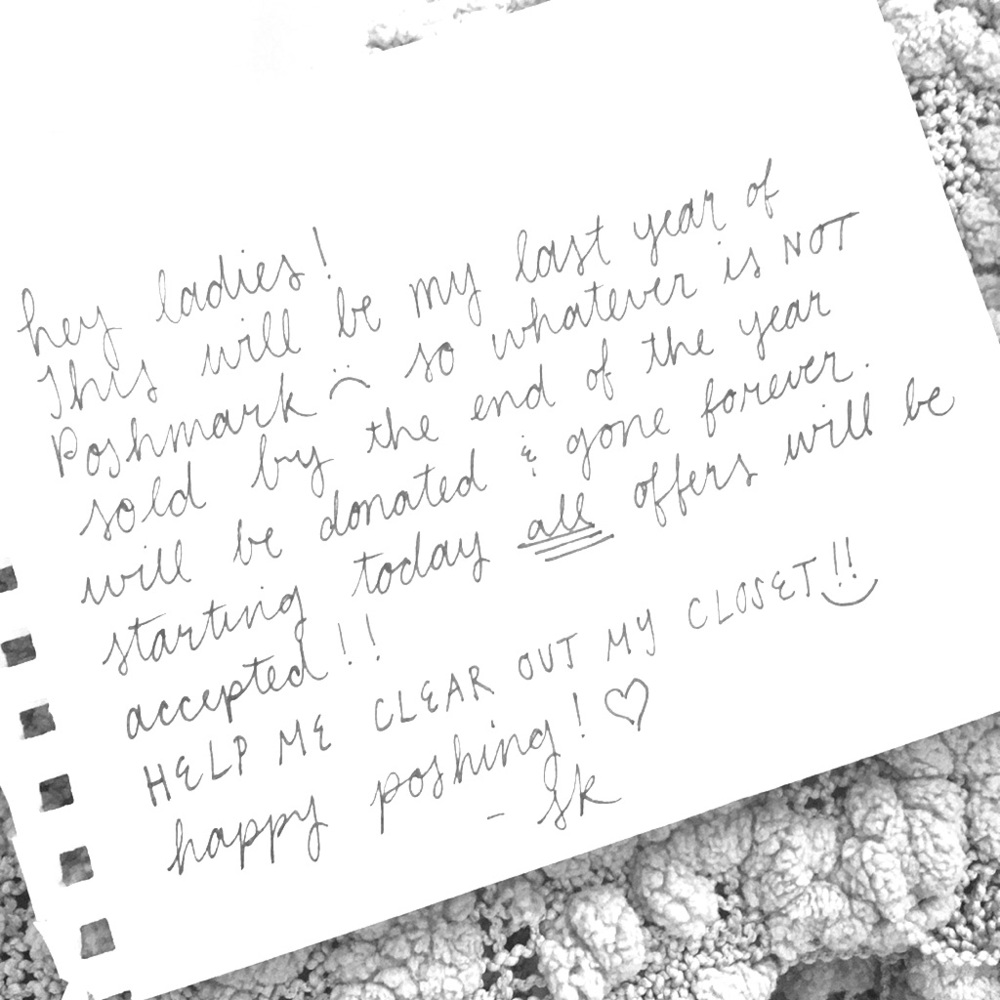 hey ladies!
This will be my last year of
Poshmark :( so whatever is NOT
sold by the end of the year
will be donated & gone forever.
starting today all offers will be
accepted!!
HELP ME CLEAR OUT MY CLOSET!!
happy poshing! ♡
- sk